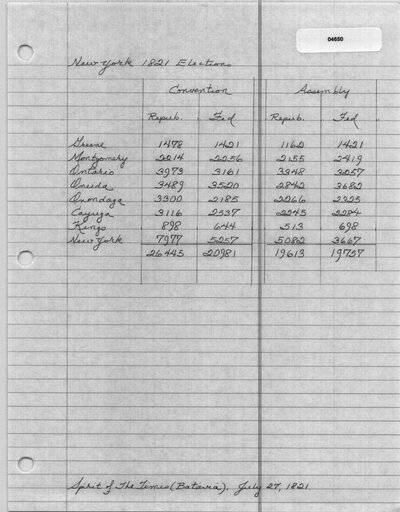 04650
New York 1821 Elections
Convention Assembly
Repub. Fed Repub. Fed
Greene 1478 1421 1162 1421
Montgomery 2214 2256 2155 2419
Ontario 3973 3161 3348 3257
Oneida 3489 3520 2842 3682
Onondaga 3300 2185 2266 2325
Cayuga 3116 2537 2245 2284
Kings 898 644 513 698
New York 7977 5257 5082 3667
26445 20981 19613 19757
Spirit of The Times (Batavia). July 27, 1821